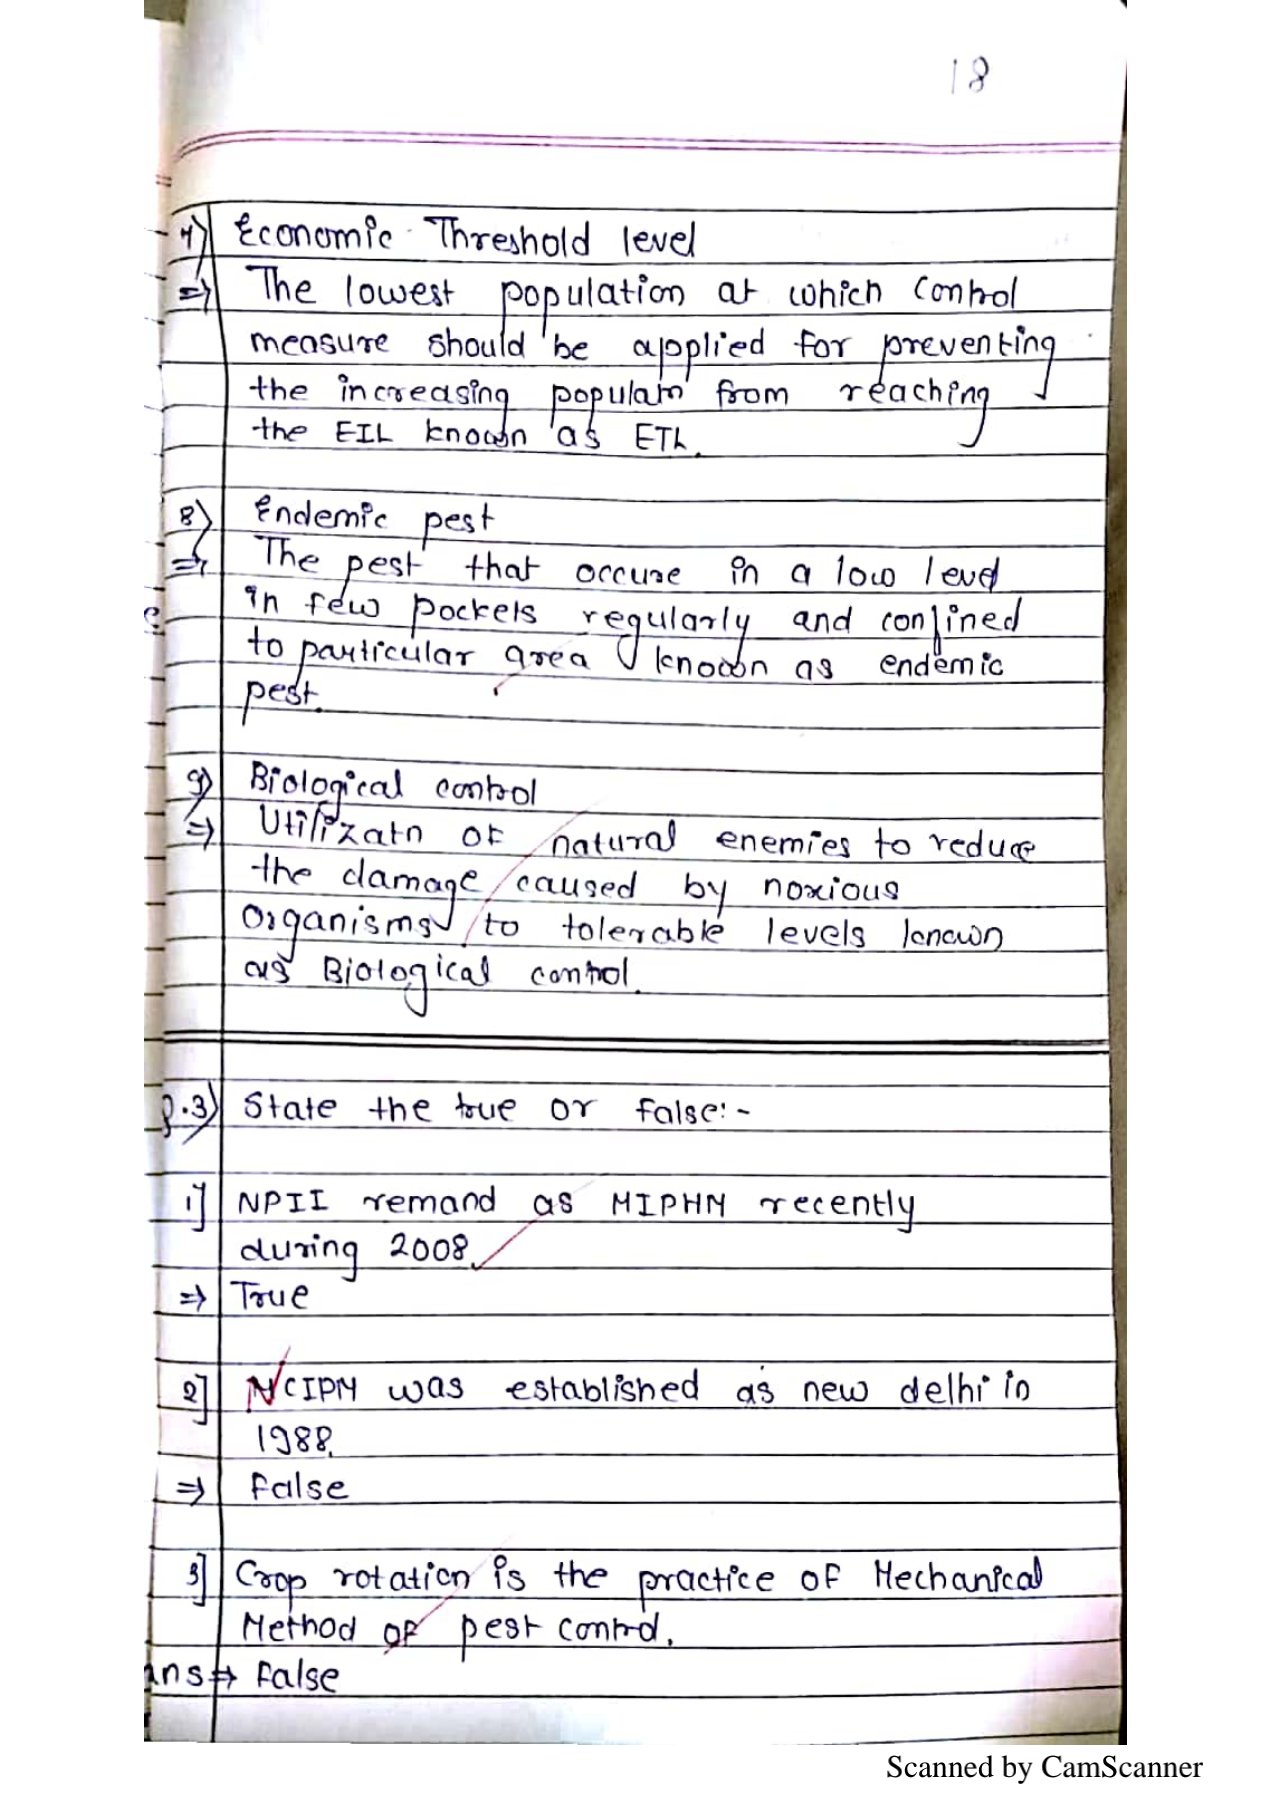 18
7) Economic Threshold level
⇒ The lowest population at which control
measure should be applied for preventing
the increasing populatn from reaching
the EIL known as ETL.
8) Endemic pest
⇒ The pest that occure in a low level
in few pockets regularly and confined
to particular area known as endemic
pest.
9) Biological control
⇒ Utilizatn of natural enemies to reduce
the damage caused by noxious
organisms to tolerable levels known
as Biological control.
Q.3) State the true or false:-
1] NPII remand as MIPHM recently
during 2008.
⇒ True
2] NCIPM was established as new delhi in
1988.
⇒ False
3] Crop rotation is the practice of Mechanical
Method of pest control.
ans ⇒ False
Scanned by CamScanner